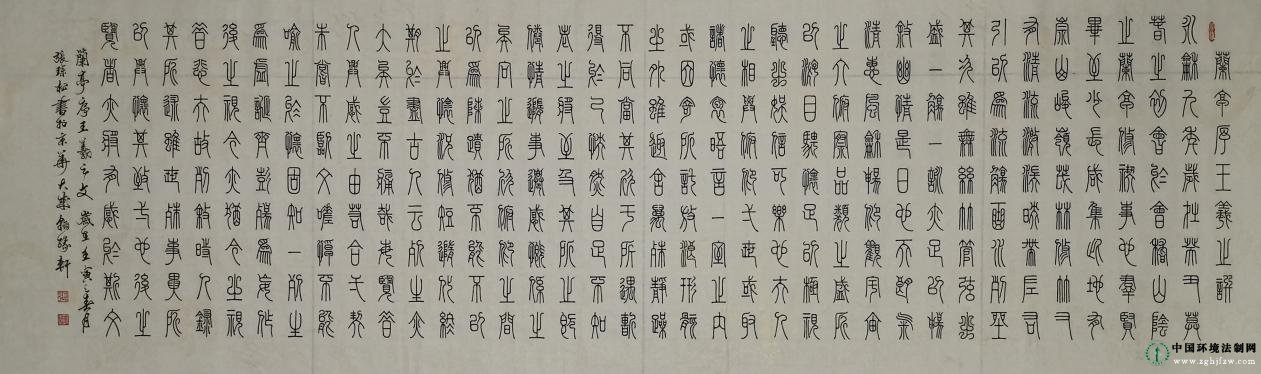 蘭亭序王羲之譔
永龢九年歲在癸丑暮
春之初會於會稽山陰
之蘭亭修禊事也羣賢
畢至少長咸集此地有
崇山峻嶺茂林修竹又
有清流激湍暎帶左右
引以為流觴曲水列坐
其次雖無絲竹管弦之
盛一觴一詠亦足以暢
敘幽情是日也天朗氣
清惠風龢暢仰觀宇宙
之大俯察品類之盛所
以游目騁懷足以極視
聽之娛信可樂也夫人
之相與俯仰一世或取
諸懷抱晤言一室之內
或因寄所託放浪形骸
之外雖趣舍萬殊靜躁
不同當其欣于所遇暫
得於己快然自足不知
老之將至及其所之既
倦情隨事遷感慨係之
矣向之所欣俯仰之間
以為陳蹟猶不能不以
之興懷況修短隨化終
期於盡古人云死生亦
大矣豈不痛哉每覽昔
人興感之由若合一契
未嘗不臨文嗟悼不能
喻之於懷固知一死生
為虛誕齊彭殤為妄作
後之視今亦猶今之視
昔悲夫故列敘時人錄
其所述雖世殊事異所
以興懷其致一也後之
覽者亦將有感於斯文
蘭亭序王羲之文歲在壬寅之春月
張琮松書於京華大業翰緣軒
中国环境法制网
www.zghjfzw.com